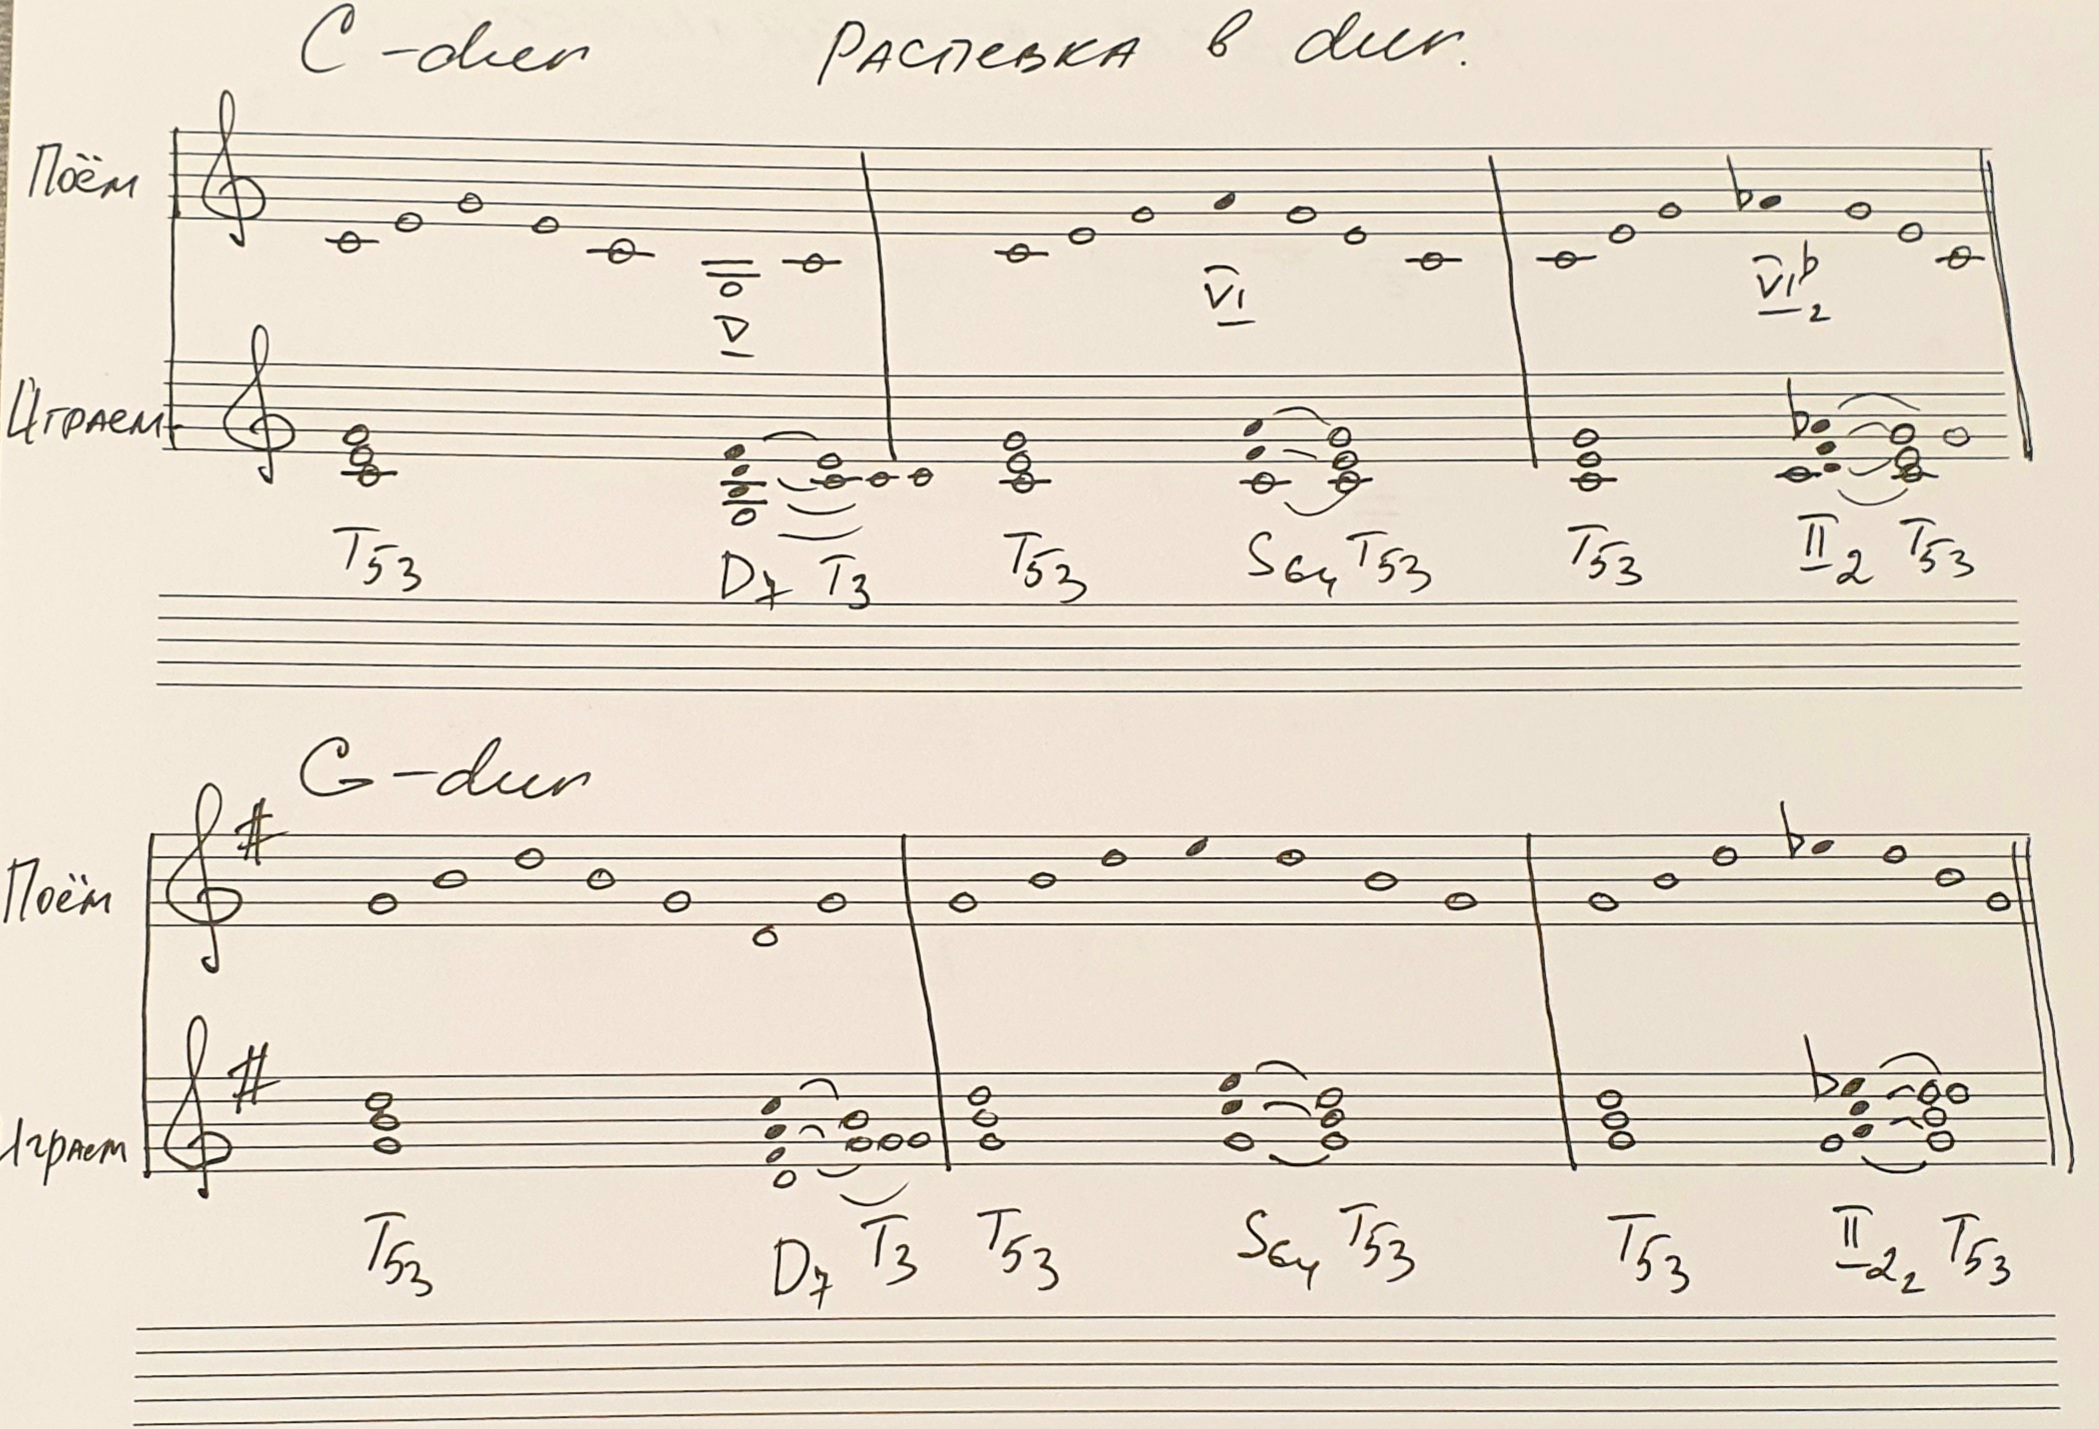 C-dur Распевка в dur.
Поём
D VI VI♭2
Играем
T53 D7 T3 T53 S64 T53 T53 II2 T53
G-dur
Поём
Играем
T53 D7 T3 T53 S64 T53 T53 II22 T53